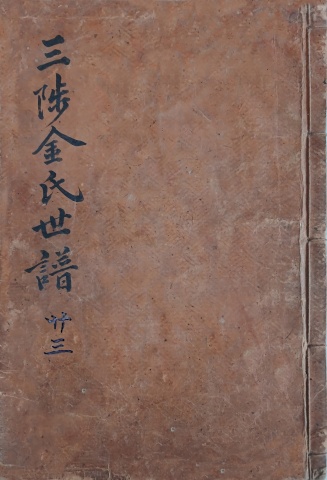 三陟金氏世譜
卄三